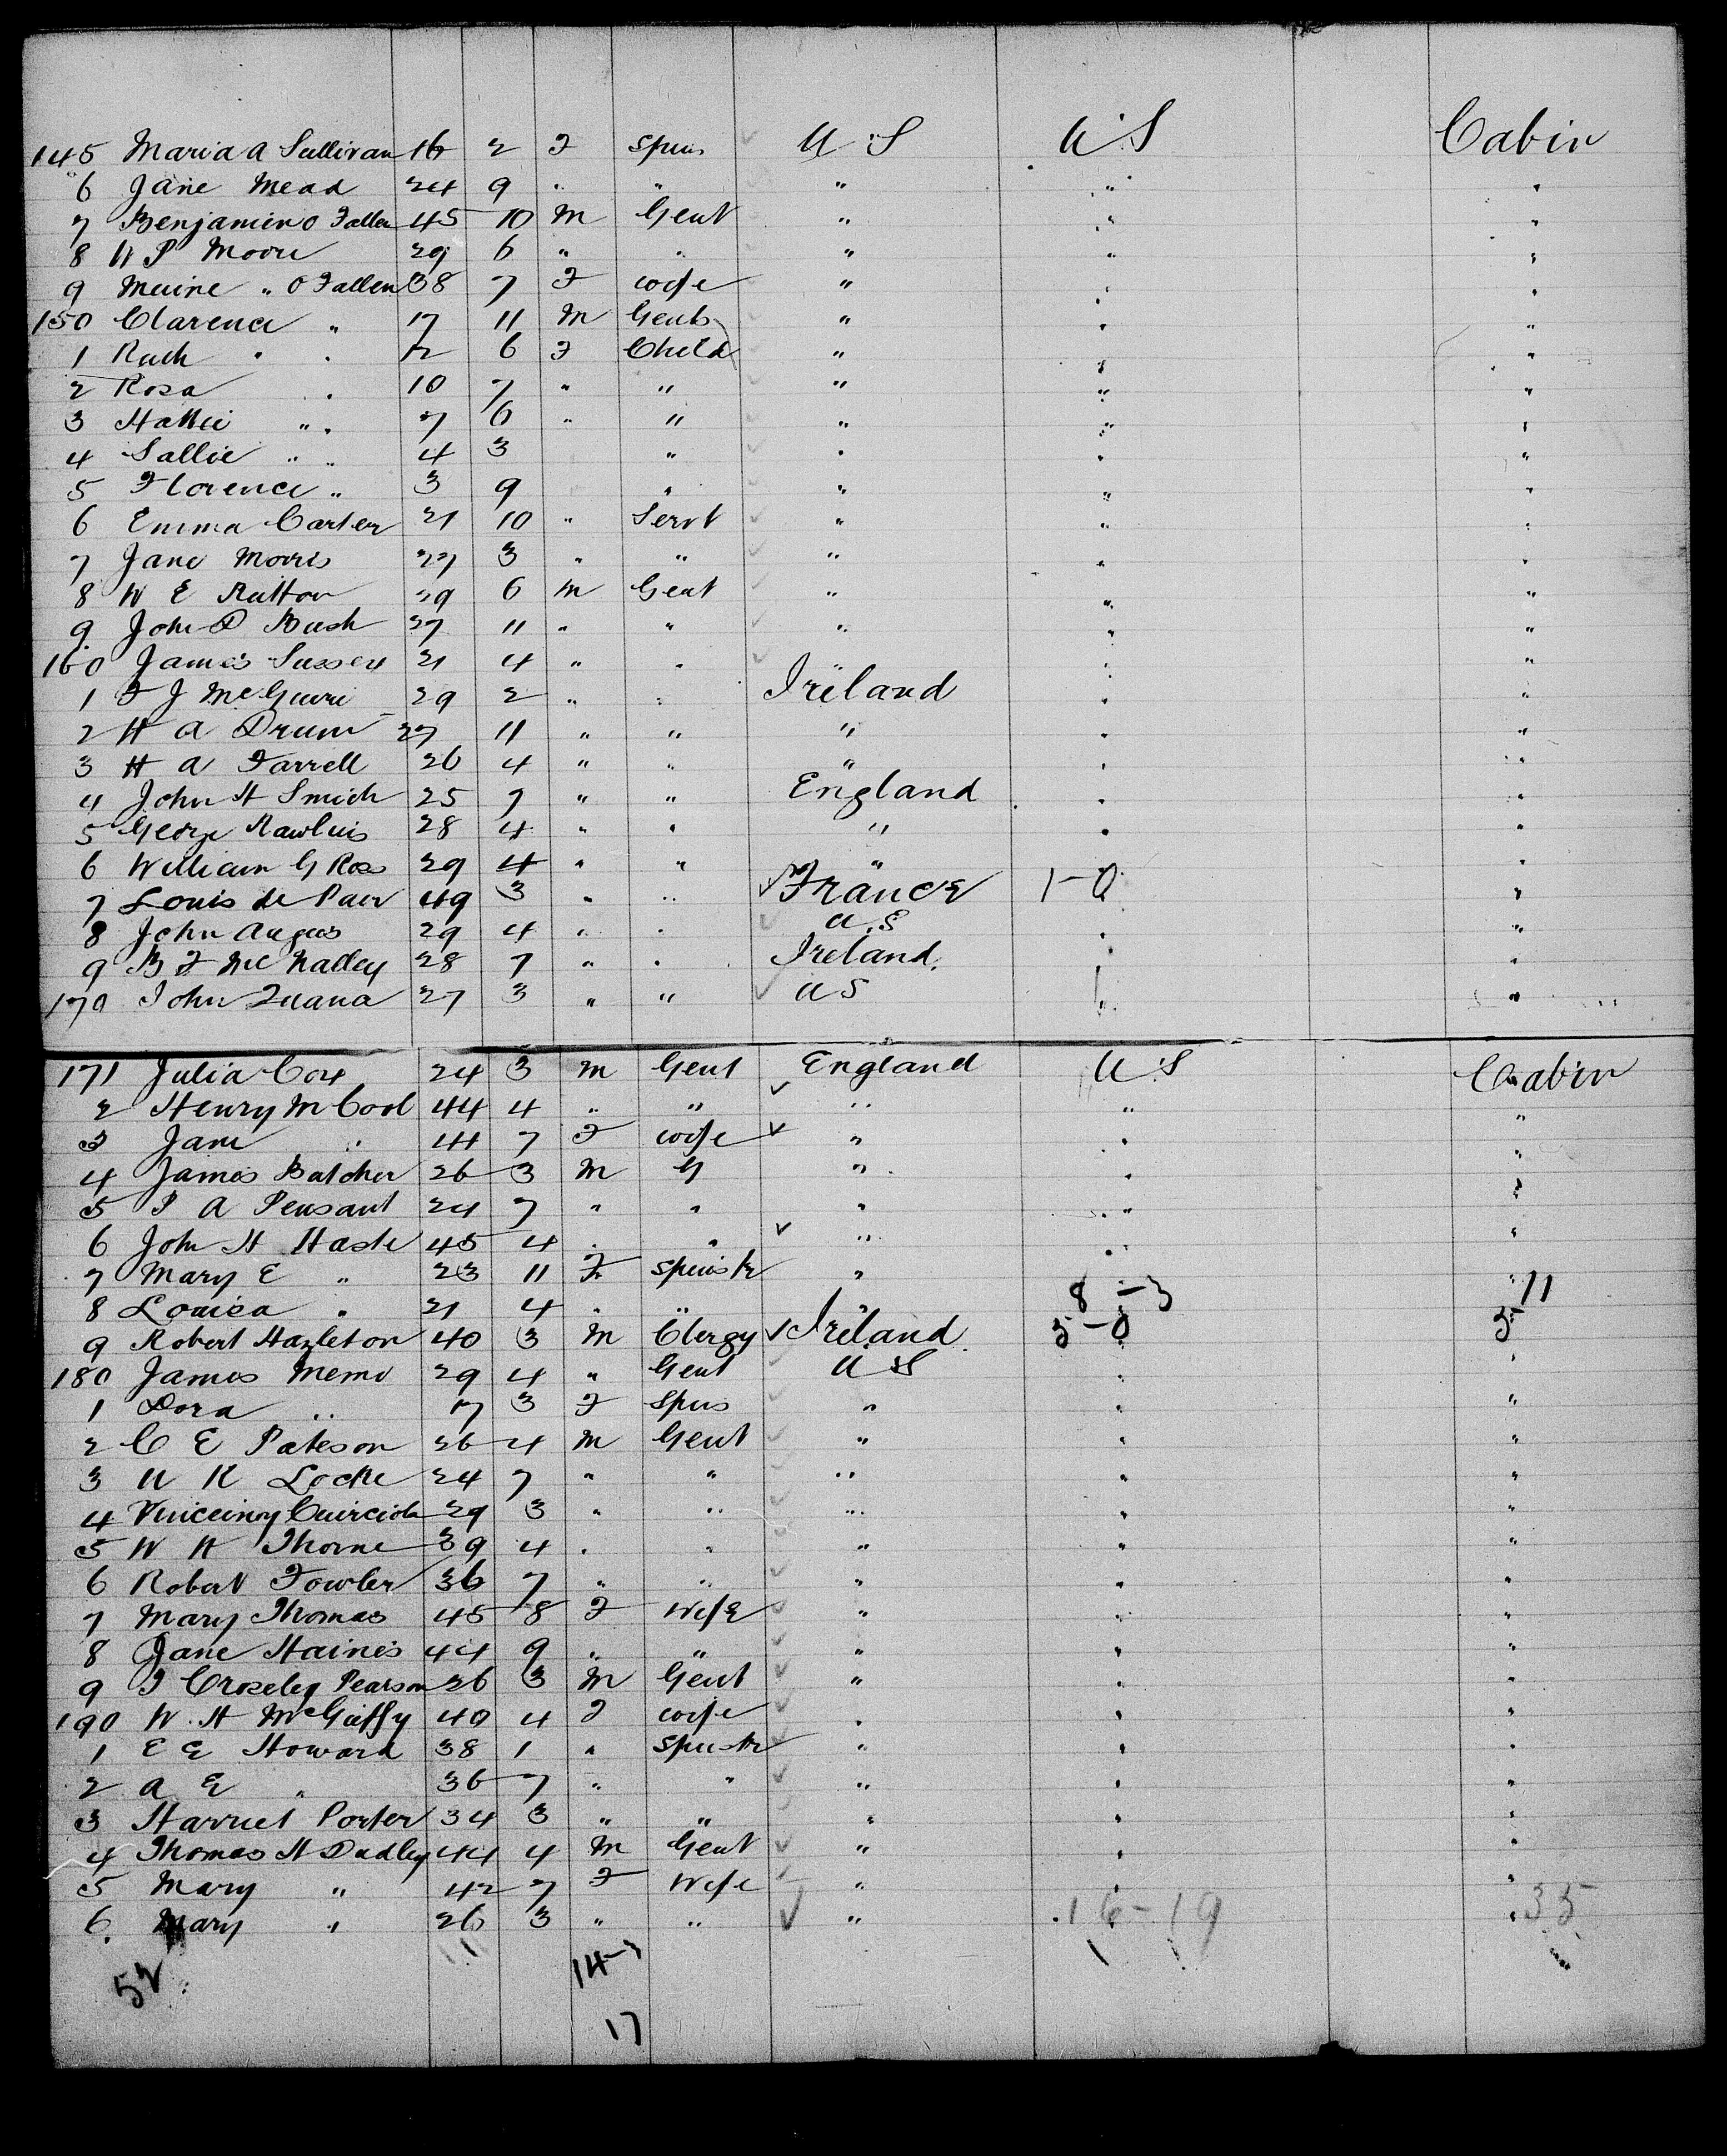 145 Maria A Sullivan 16 2 F Spins U S U S Cabin
6 Jane Mead 24 9 " " " " "
7 Benjamin O Fallen 45 10 M Gent " " "
8 W P Moore 29 6 " " " " "
9 " O Fallen 38 7 F wife " " "
150 Clarence " 17 11 M Gent " " "
1 Ruth " " 12 6 F Child " " "
2 Rosa " 10 7 " " " " "
3 Hattie " " 7 6 " " " " "
4 Sallie " " 4 3 " " " "
5 Florence " 3 9 " " " "
6 Emma Carter 21 10 " Servt " " "
7 Jane Morris 27 3 " " " " "
8 W E Rutton 29 6 M Gent " " "
9 John D Bush 27 11 " " " " "
160 James Sussex 21 4 " " " "
1 F J McGuire 29 2 " " Ireland " "
2 H A Drum 27 11 " " " " "
3 H A Farrell 26 4 " " " " "
4 John H Smith 25 7 " " England " "
5 George Rawlins 28 4 " " " " "
6 William G Ross 29 4 " " " "
7 Louis de Paer 49 3 " " France 1-0 "
8 John Angus 29 4 " " U.S " "
9 B F McNalley 28 7 " " Ireland " "
170 John 27 3 " " U S " "
171 Julia Cox 24 3 M Gent England U S Cabin
2 Henry M Cool 44 4 " " " " "
3 Jane " 44 7 F wife " " "
4 James Batcher 26 3 M G " " "
5 P A Pensant 24 7 " " " " "
6 John H Haste 45 4 " " " " "
7 Mary E " 23 11 F Spinstr " "
8 Louisa " 21 4 " " " 8-3 11
9 Robert Hazleton 40 3 M Clergy Ireland 5-0 5
180 James Memo 29 4 " Gent U S " "
1 Dora " 17 3 F Spins " " "
2 C E Pateson 26 4 M Gent " " "
3 W K Locke 24 7 " " " " "
4 29 3 " " " " "
5 W H Thorne 39 4 " " " " "
6 Robert Fowler 36 7 " " " " "
7 Mary Thomas 45 8 F Wife " " "
8 Jane Haines 44 9 " " " " "
9 J Croseley Pearson 26 3 M Gent " " "
190 W. H McGuffy 40 4 F wife " " "
1 E E Howard 38 1 " Spinstr " " "
2 A E " 36 7 " " " " "
3 Harriet Porter 34 3 " " " " "
4 Thomas H Dudley 44 4 M Gent " " "
5 Mary " 42 7 F Wife " " "
6 Mary " 26 3 " " " 16-19 " 35
52 11 14-3
17